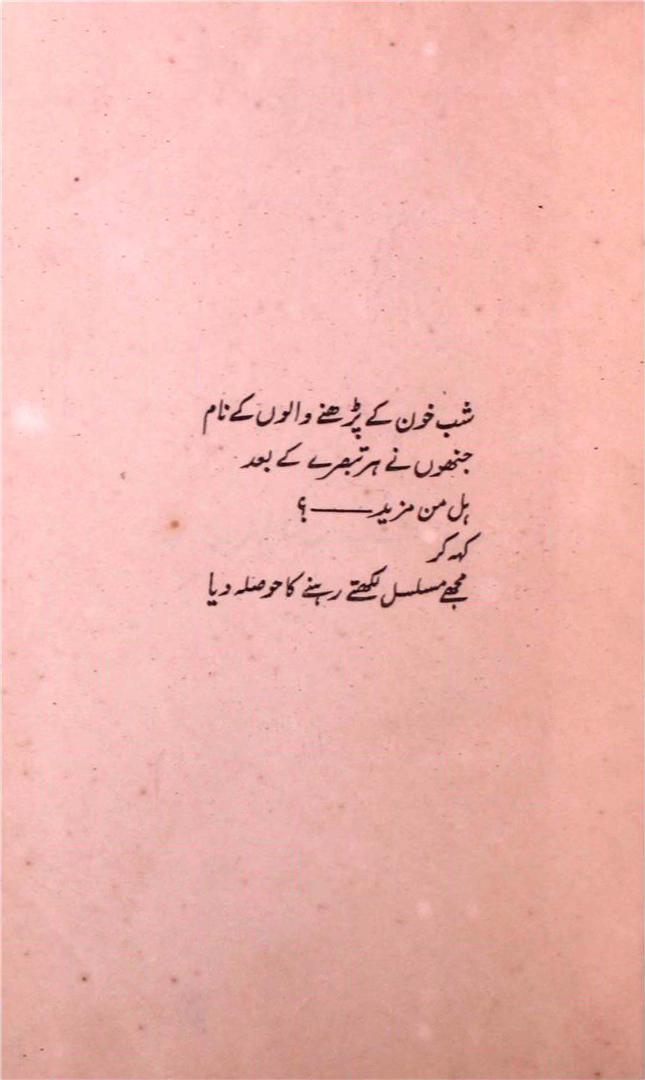 شب خون کے پڑھنے والوں کے نام
جنھوں نے ہر تبصرے کے بعد
ہل من مزید ——— ؟
کہہ کر
مجھے مسلسل لکھتے رہنے کا حوصلہ دیا